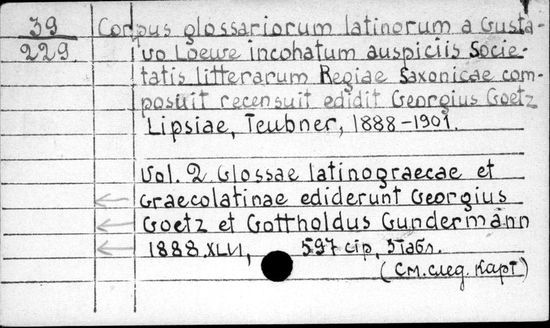 39
229.
Corpus glossariorum latinorum a Gusta-
vo Loewe incohatum auspiciis Socie-
tatis litterarum Regiae Saxonicae com-
posuit recensuit edidit Georgius Goetz
Lipsiae, Teubner, 1888-1901.
Vol. 2 Glossae latinograecae et
Graecolatinae ediderunt Georgius
Goetz et Gottholdus Gundermann
1888. XLVI, 597 стр, 3 табл.
(См. след. карт)